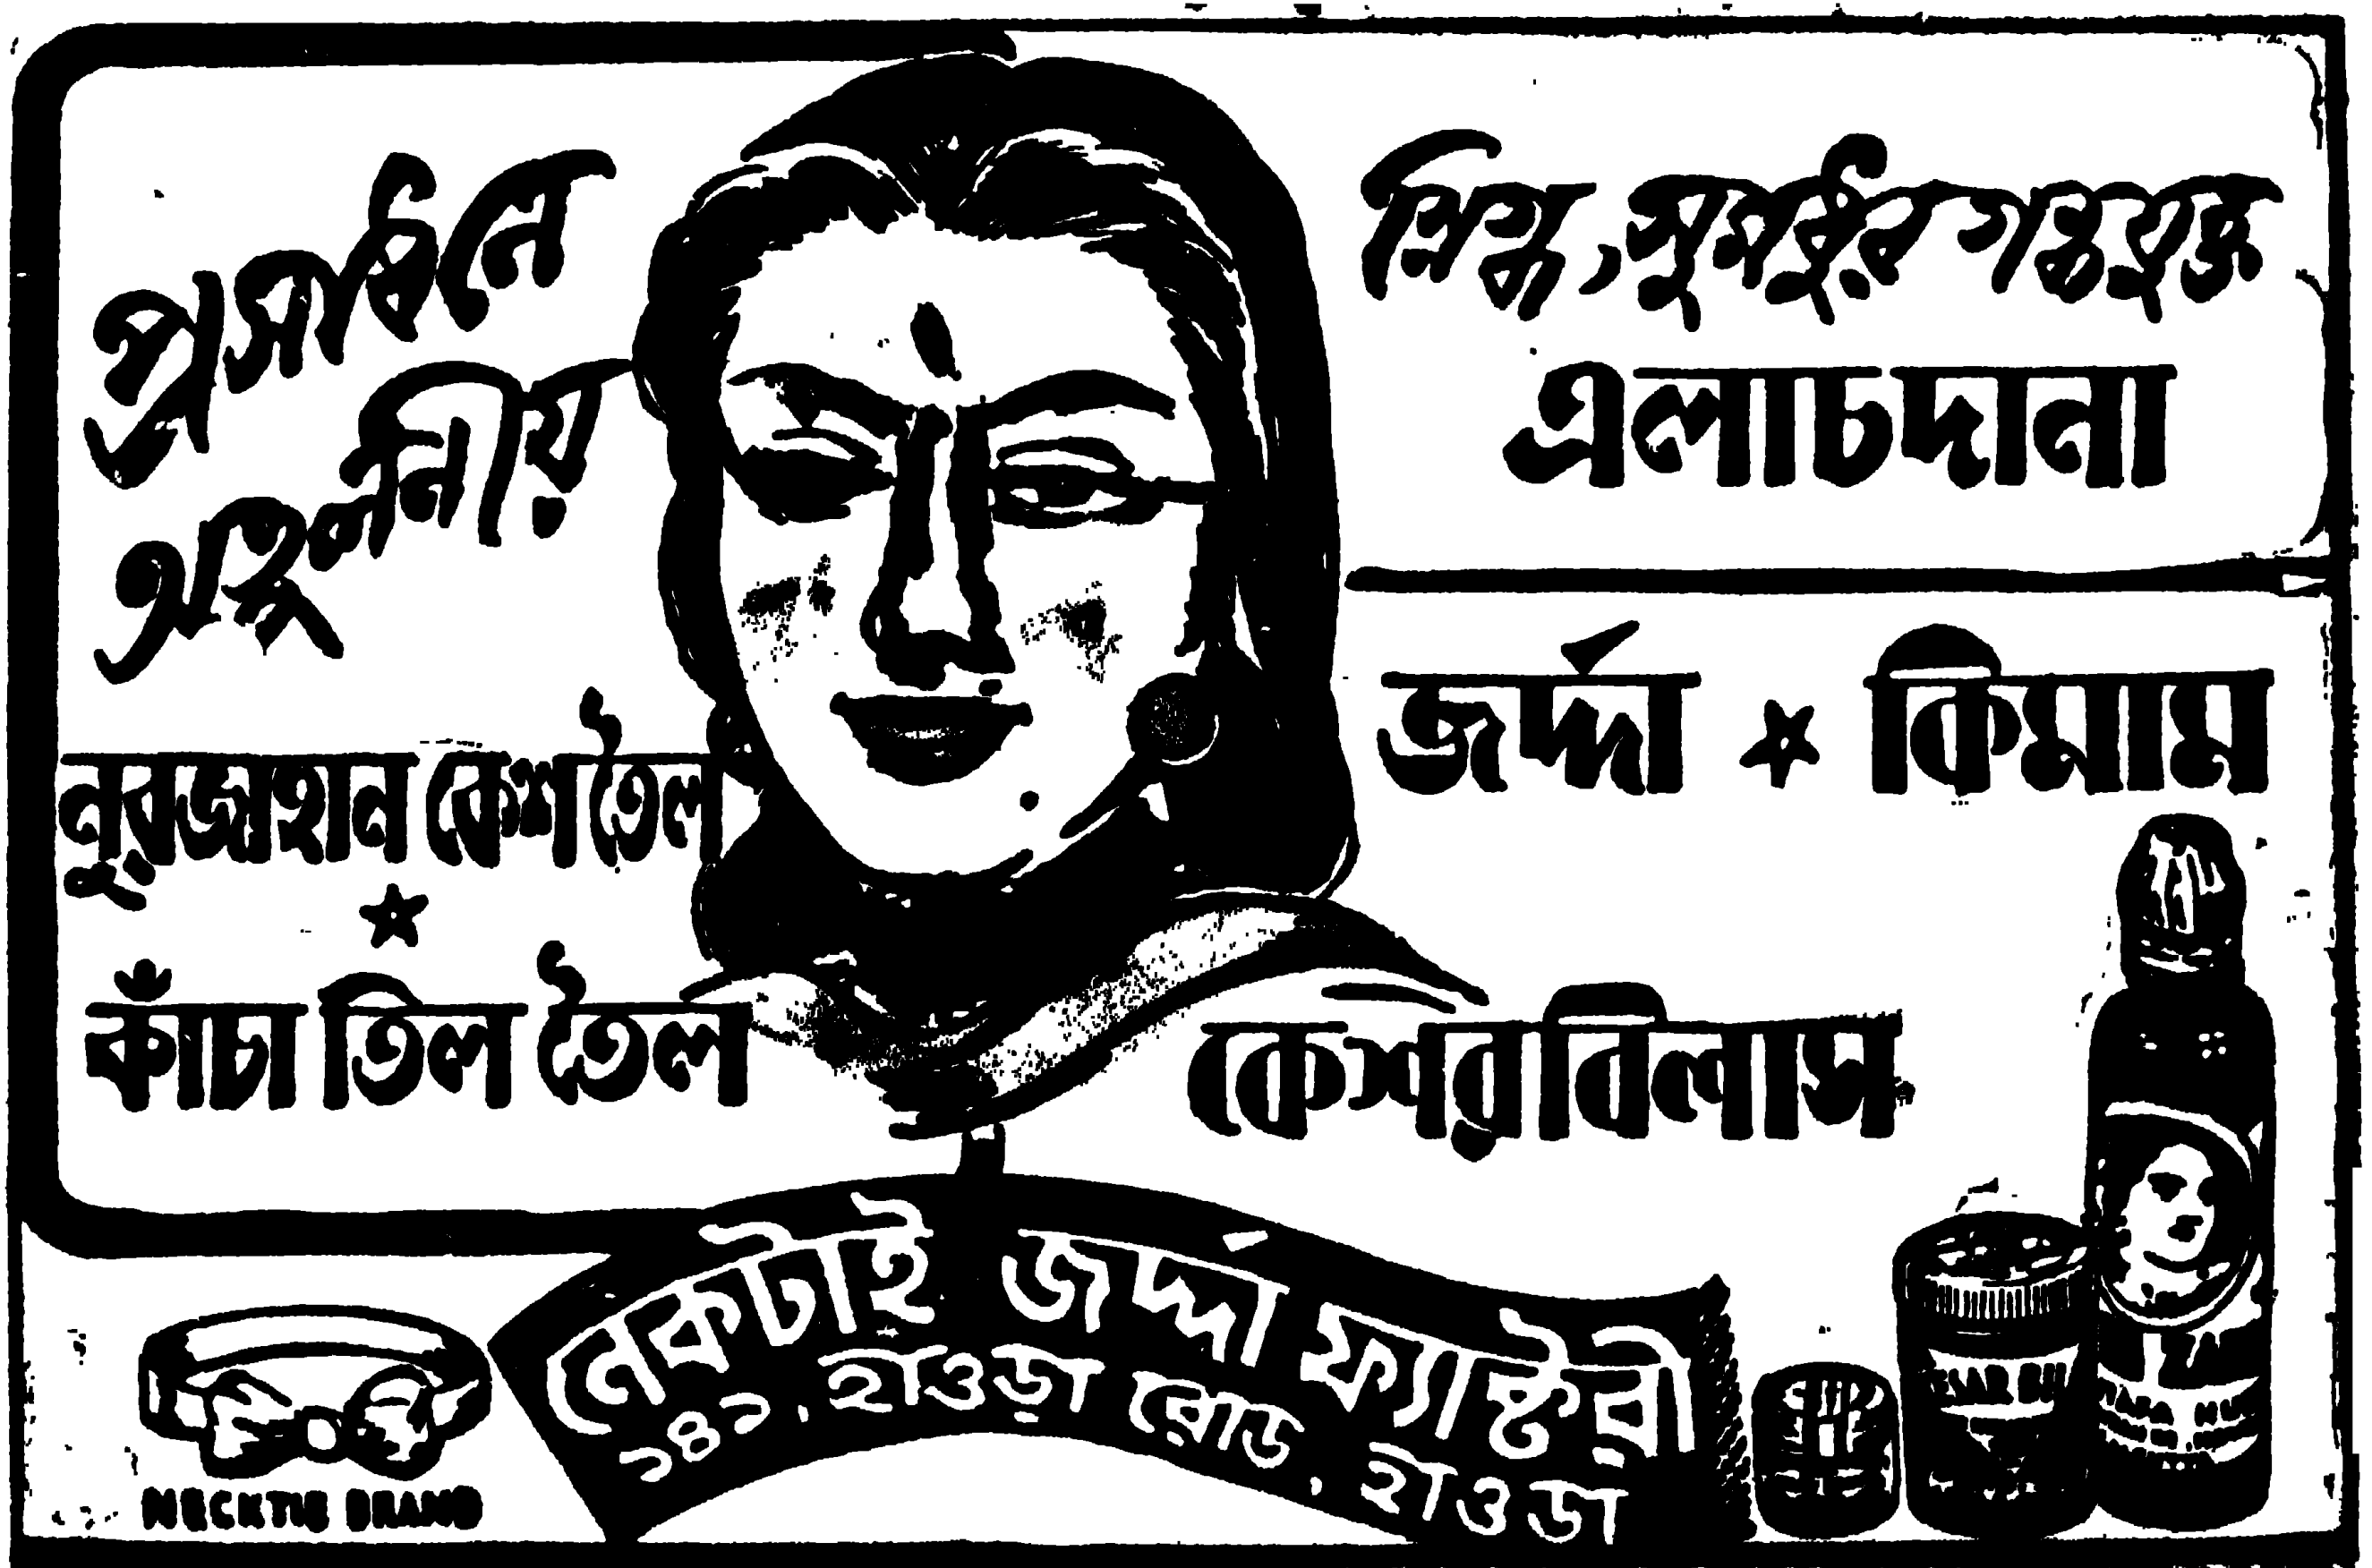 প্রসাধনে
অতুলনীয়
নুরজাহান কেশ তৈল
কাঁচা তিল তৈল
স্নিগ্ধ, সুমধুর গন্ধযুক্ত
এলাচদানা
জর্দ্দা কিমাম
কেসরবিলাস
নেমচাঁই জর্দ্দা ফ্যাক্টরী
১৪০, হাওড়া রোড, হাওড়া